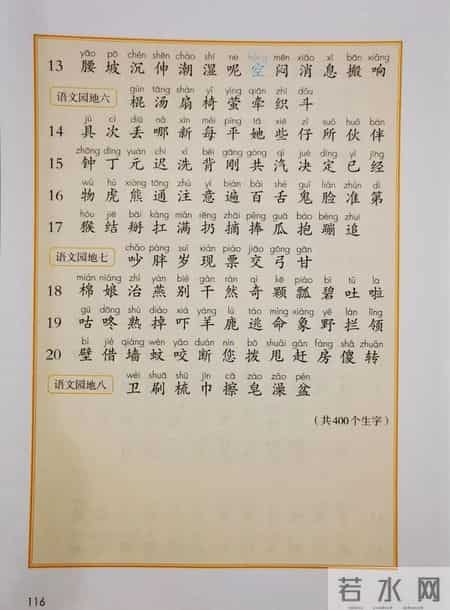 yāo pō chén shēn cháo shī ne kōng mēn xiāo xī bān xiǎng
13 腰 坡 沉 伸 潮 湿 呢 空 闷 消 息 搬 响
gùn tāng shàn yǐ yíng qiān zhī dǒu
语文园地六 棍 汤 扇 椅 萤 牵 织 斗
jù cì diū nǎ xīn měi píng tā xiē zǐ suǒ huǒ bàn
14 具 次 丢 哪 新 每 平 她 些 仔 所 伙 伴
zhōng dīng yuán chí xǐ bēi gāng gòng qì jué dìng yǐ jīng
15 钟 丁 元 迟 洗 背 刚 共 汽 决 定 已 经
wù hǔ xióng tōng zhù yì biàn bǎi shé guǐ liǎn zhǔn dì
16 物 虎 熊 通 注 意 遍 百 舌 鬼 脸 准 第
hóu jiē bāi káng mǎn rēng zhāi pěng guā bào bèng zhuī
17 猴 结 掰 扛 满 扔 摘 捧 瓜 抱 蹦 追
chǎo pàng suì xiàn piào jiāo gōng gān
语文园地七 吵 胖 岁 现 票 交 弓 甘
mián niáng zhì yàn bié gān rán qí kē piáo bì tǔ la
18 棉 娘 治 燕 别 干 然 奇 颗 瓢 碧 吐 啦
gū dōng shú diào xià yáng lù táo mìng xiàng yě lán lǐng
19 咕 咚 熟 掉 吓 羊 鹿 逃 命 象 野 拦 领
bì jiè qiáng wén yǎo duàn nín bō shuǎi gǎn fáng shǎ zhuǎn
20 壁 借 墙 蚊 咬 断 您 拨 甩 赶 房 傻 转
wèi shuā shū jīn cā zào zǎo pén
语文园地八 卫 刷 梳 巾 擦 皂 澡 盆
（共400个生字）
116
若水网
din100.com